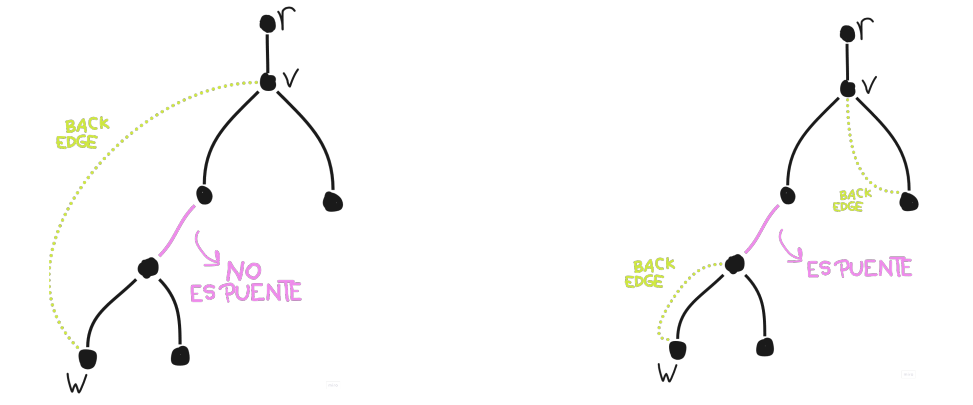 r
v
BACK
EDGE
NO
ES PUENTE
w
r
v
BACK
EDGE
BACK
EDGE
ES PUENTE
w